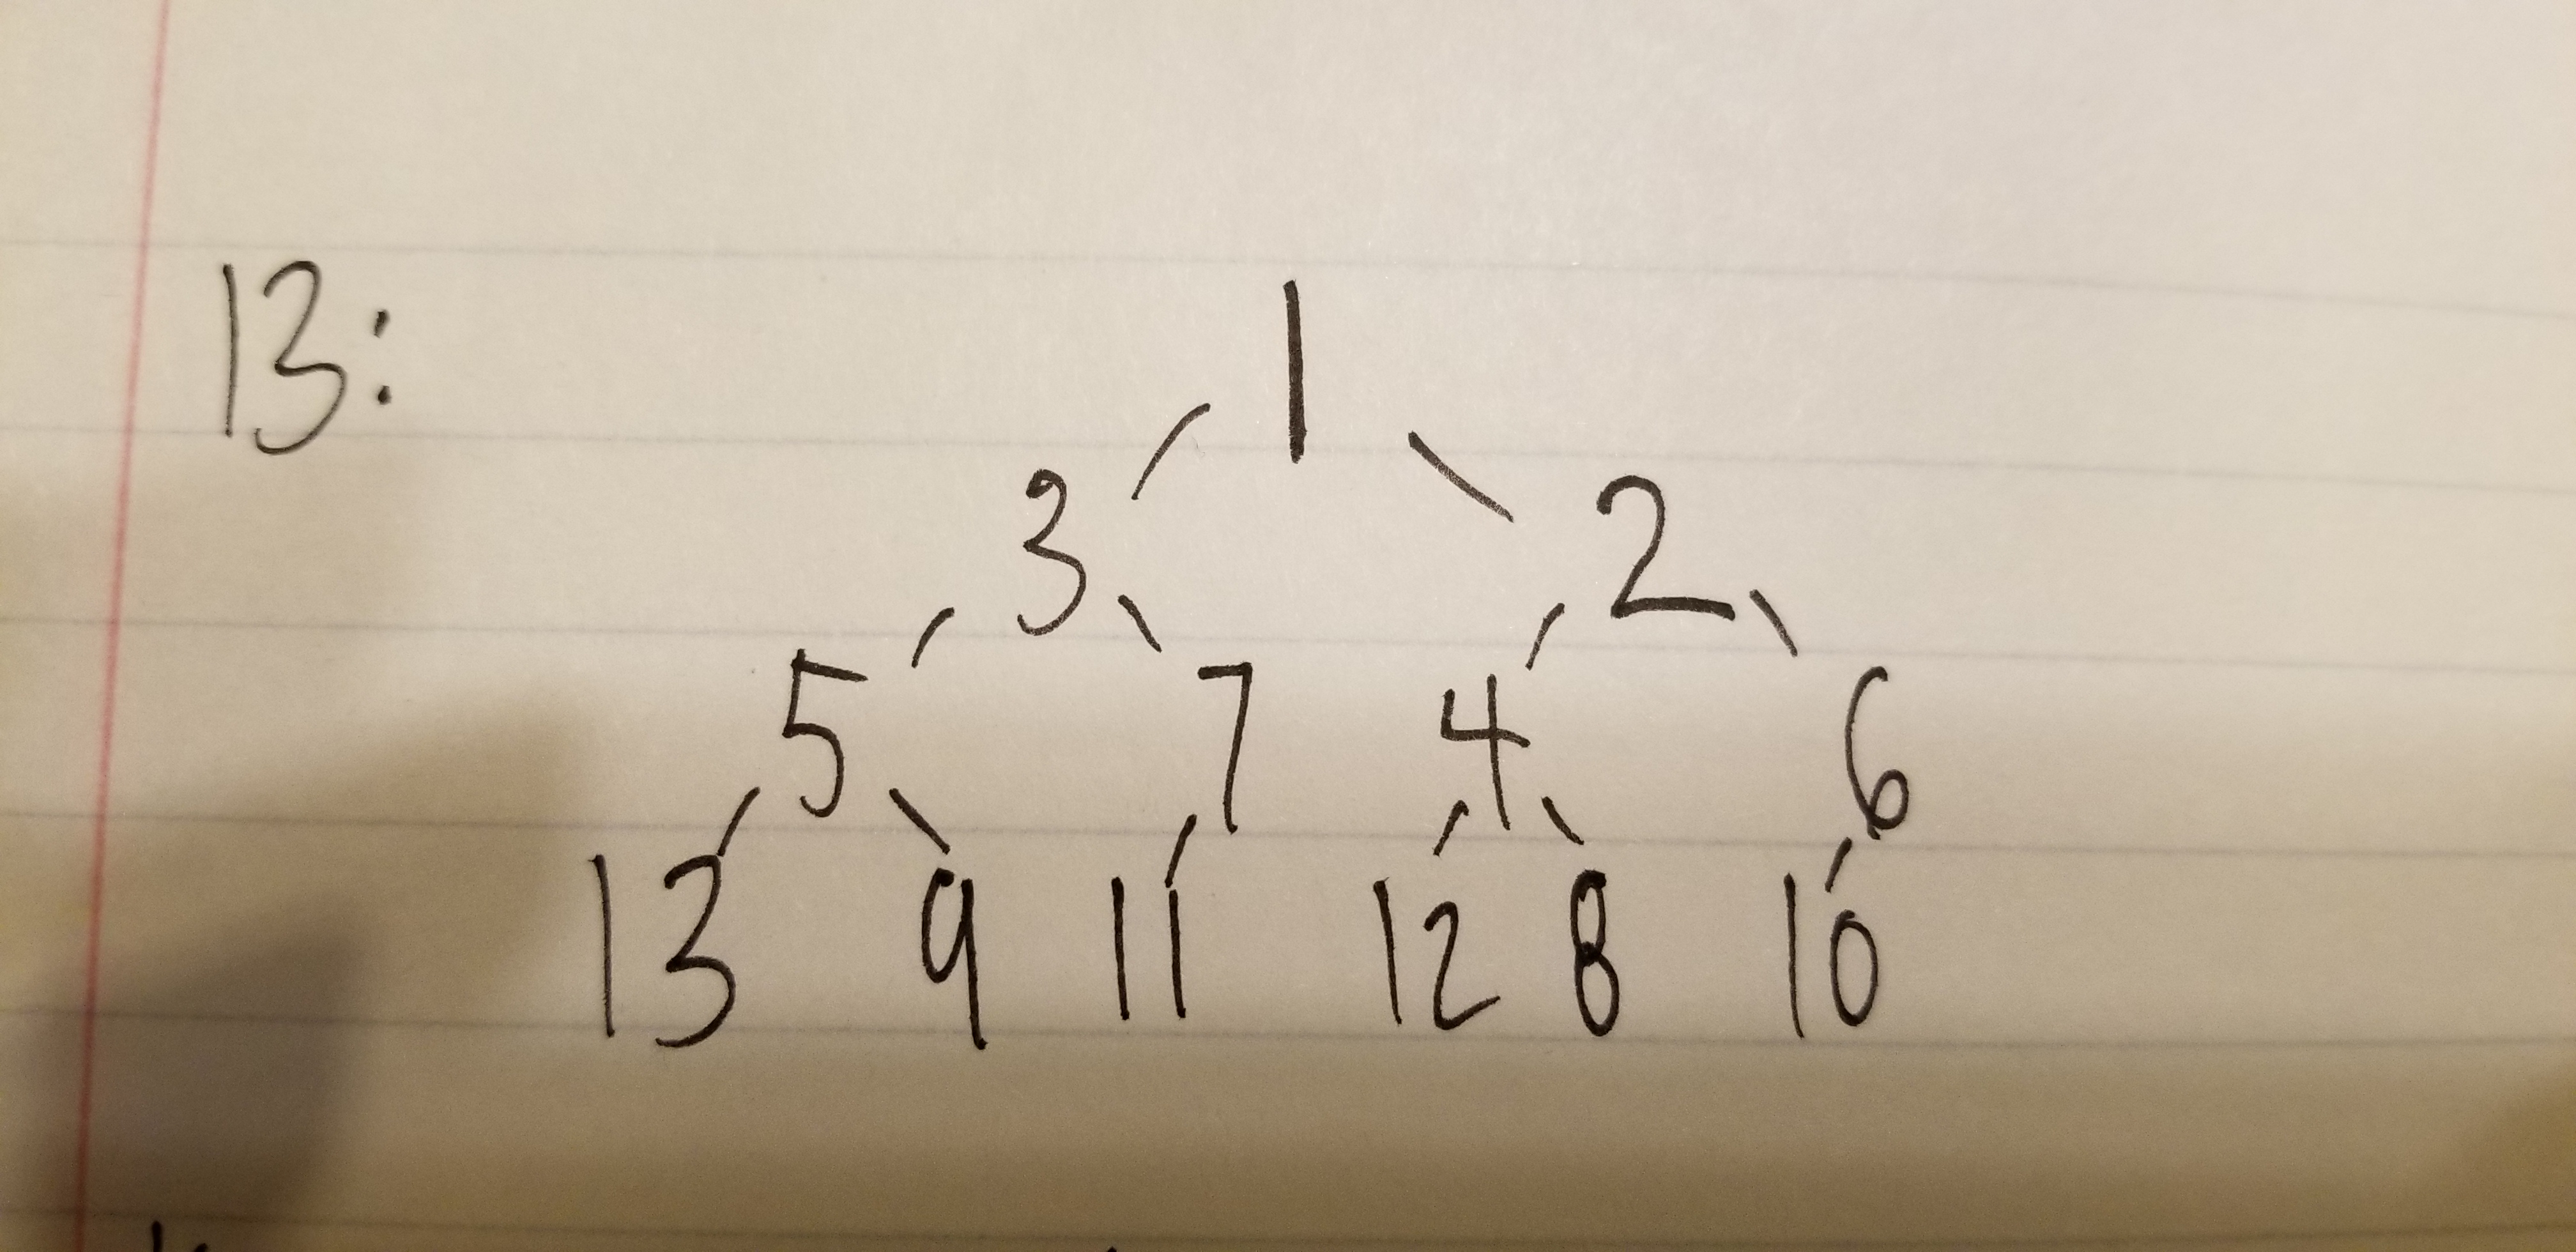 13: 1
3 2
5 7 4 6
13 9 11 12 8 10